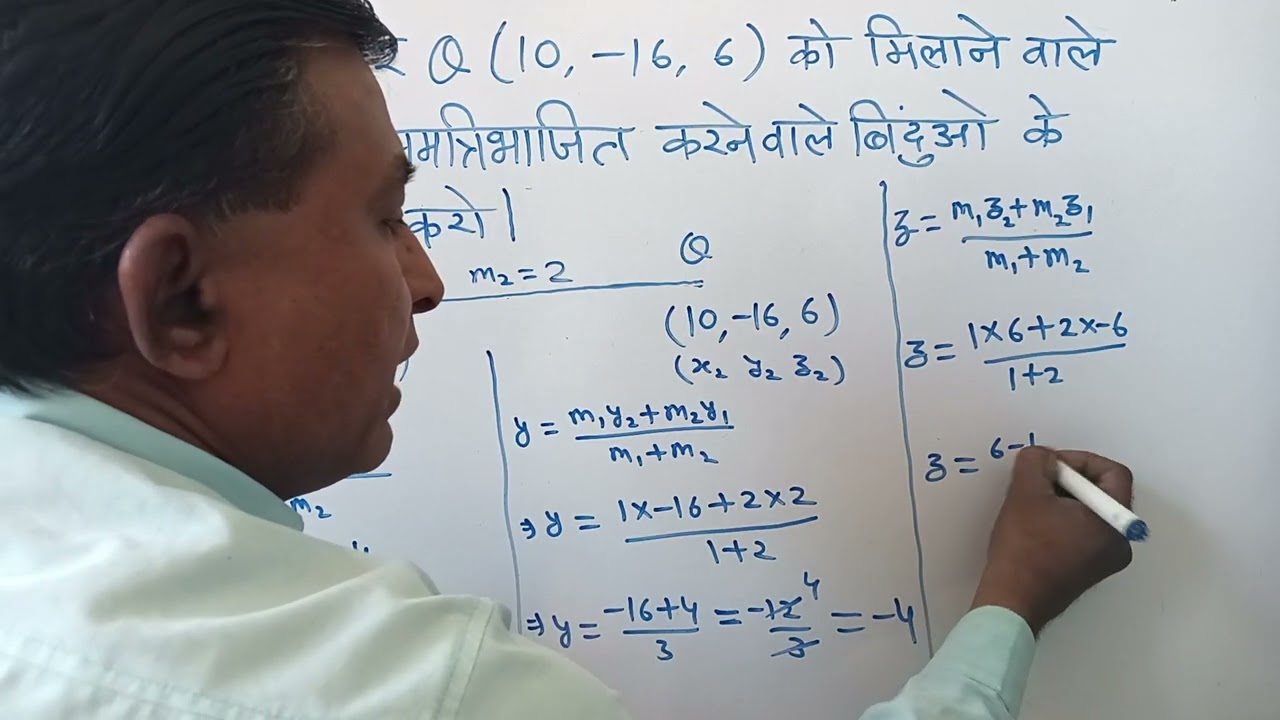 Q (10, -16, 6) को मिलाने वाले
समत्रिभाजित करने वाले बिंदुओ के
करो।
m₂ = 2
Q
(10, -16, 6)
(x₂ y₂ z₂)
m₂
y = (m₁y₂ + m₂y₁)/(m₁ + m₂)
⇒ y = (1 × -16 + 2 × 2)/(1 + 2)
⇒ y = (-16 + 4)/3 = -12/3 4 = -4
z = (m₁z₂ + m₂z₁)/(m₁ + m₂)
z = (1 × 6 + 2 × -6)/(1 + 2)
z = 6 - 1